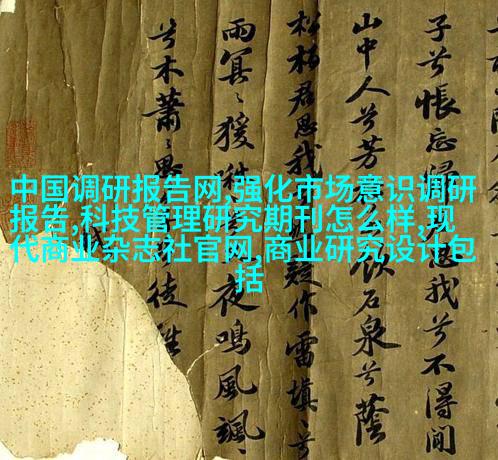 中国调研报告网,强化市场意识调研
报告,科技管理研究期刊怎么样,现
代商业杂志社官网,商业研究设计包
括
子兮悵忘 我兮不得閒
山中人兮芳 飲石泉兮蔭
松柏君思我 作雷填〻兮
雨冥〻猨啾 夜鳴風颯〻
兮木蕭〻 徒離